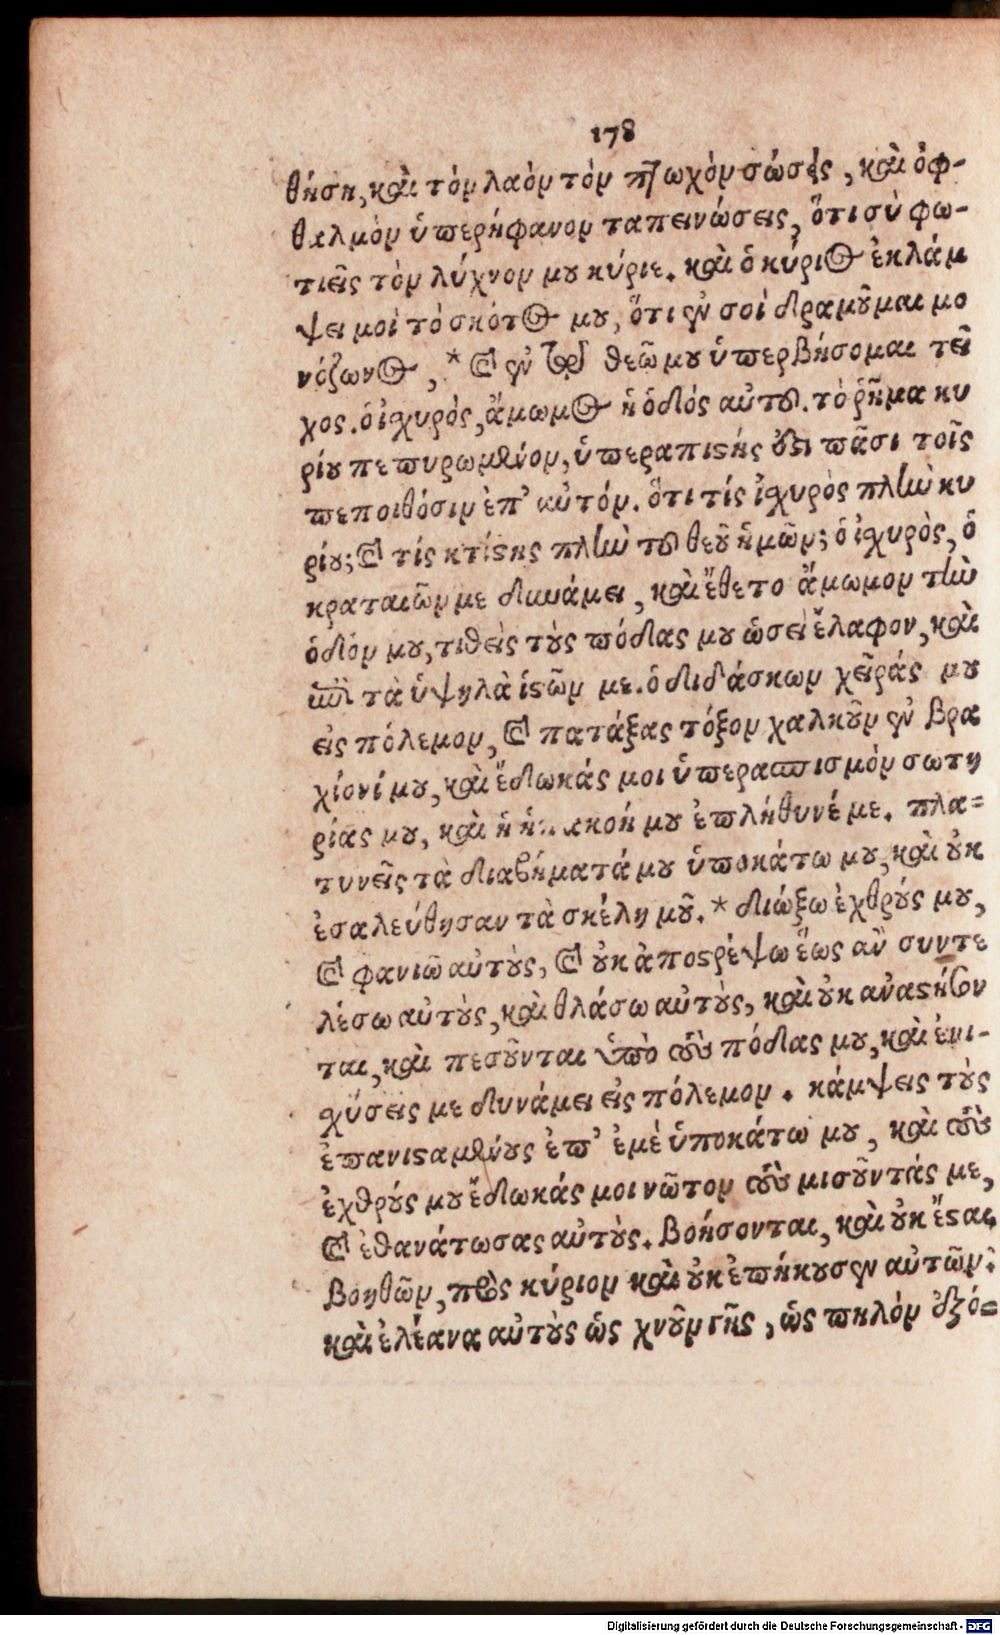 178
θήση, καὶ τὸν λαὸν τὸν πτωχὸν σώσεις, καὶ ὀφ-
θαλμὸν ὑπερήφανον ταπεινώσεις, ὅτι σὺ φω-
τιεῖς τὸν λύχνον μου κύριε. καὶ ὁ κύριος ἐκλάμ
ψει μοὶ τὸ σκότος μου, ὅτι ἐν σοὶ δραμοῦμαι μο
νόζωνος, * καὶ ἐν τῷ θεῶ μου ὑπερβήσομαι τεῖ
χος. ὁ ἰσχυρὸς, ἄμωμος ἡ ὁδός αὐτοῦ. τὸ ῥῆμα κυ
ρίου πεπυρωμένον, ὑπεραπιστής ἐστι πᾶσι τοῖς
πεποιθόσιν ἐπ' αὐτόν. ὅτι τίς ἰσχυρὸς πλὴν κυ
ρίου; καὶ τίς κτίστης πλὴν τοῦ θεοῦ ἡμῶν; ὁ ἰσχυρὸς, ὁ
κραταιῶν με δυνάμει, καὶ ἔθετο ἄμωμον τὴν
ὁδόν μου, τιθεὶς τοὺς πόδας μου ὡσεὶ ἔλαφον, καὶ
ἐπὶ τὰ ὑψηλὰ ἱστῶν με. ὁ διδάσκων χεῖράς μου
εἰς πόλεμον, καὶ πατάξας τόξον χαλκοῦν ἐν βρα
χίονί μου, καὶ ἔδωκάς μοι ὑπερασπισμὸν σωτη
ρίας μου, καὶ ἡ ὑπακοή μου ἐπλήθυνέ με. πλα=
τυνεῖς τὰ διαβήματά μου ὑποκάτω μου, καὶ οὐκ
ἐσαλεύθησαν τὰ σκέλη μοῦ. * διώξω ἐχθρούς μου,
καὶ φανιῶ αὐτοὺς, καὶ οὐκ ἀποστρέψω ἕως αὖ συντε
λέσω αὐτοὺς, καὶ θλάσω αὐτοὺς, καὶ οὐκ αναστήσον
ται, καὶ πεσοῦνται ὑπὸ τοὺς πόδας μου, καὶ ἐνι-
χύσεις με δυνάμει εἰς πόλεμον. κάμψεις τοὺς
ἐπανισταμένους ἐπ' ἐμὲ ὑποκάτω μου, καὶ τοὺς
ἐχθρούς μου ἔδωκάς μοι νῶτον τοὺς μισοῦντάς με,
καὶ ἐθανάτωσας αὐτοὺς. βοήσονται, καὶ οὐκ ἔσται
βοηθῶν, πρὸς κύριον καὶ οὐκ ἐπήκουσεν αὐτῶν.
καὶ ἐλέανα αὐτοὺς ὡς χνοῦν γῆς, ὡς πηλὸν ἐξό=
Digitalisierung gefördert durch die Deutsche Forschungsgemeinschaft - DFG